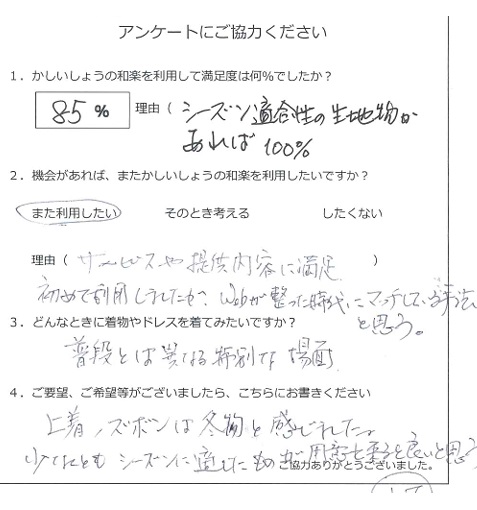 アンケートにご協力ください
1．かしいしょうの和楽を利用して満足度は何％でしたか？
85 % 理由（ シーズン適合性の生地物が
あれば 100%
2．機会があれば、またかしいしょうの和楽を利用したいですか？
また利用したい そのとき考える したくない
理由（ サービスや提供内容に満足 ）
初めて利用しましたが、Webが整った時代にマッチしている手法
と思う。
3．どんなときに着物やドレスを着てみたいですか？
普段とは異なる特別な場面
4．ご要望、ご希望等がございましたら、こちらにお書きください
上着、ズボンは冬物と感じられた。
少なくとも シーズンに適したものが用意出来ると良いと思う
ご協力ありがとうございました。